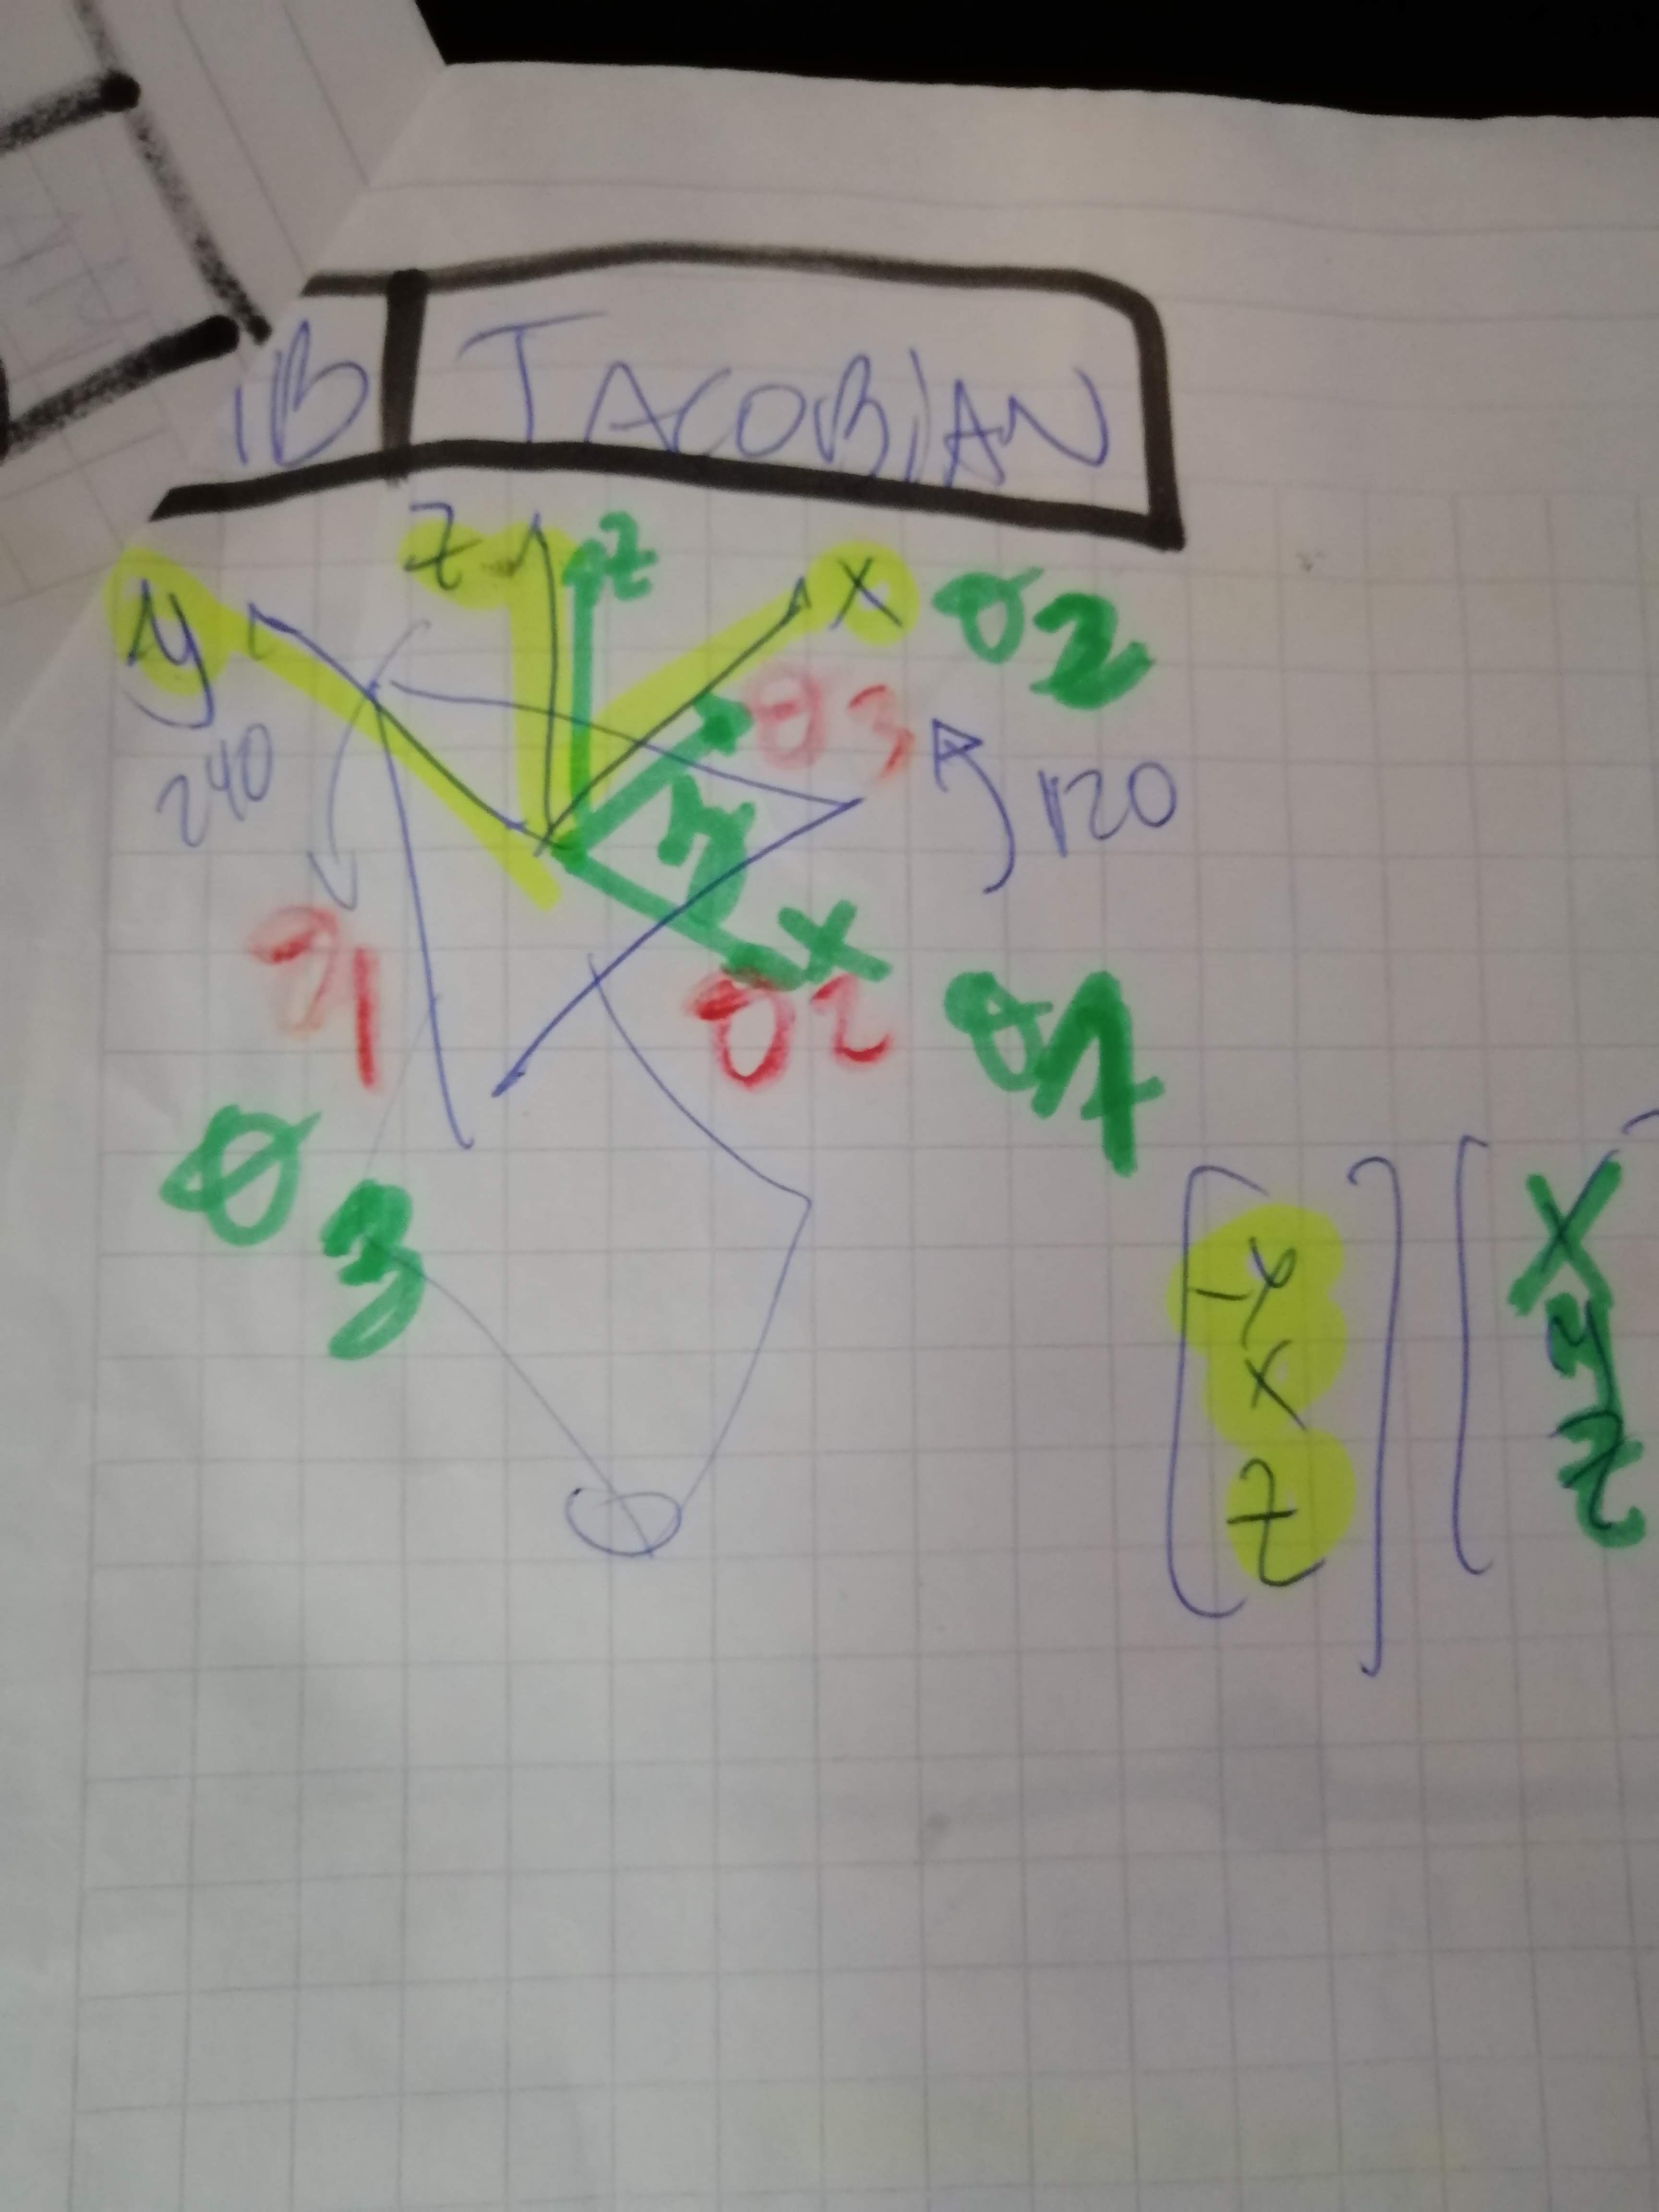 1B JACOBIAN
z z
y x θ2
θ3
240 y 120
x
θ1 θ2 θ1
θ3
-y x
x y
z z